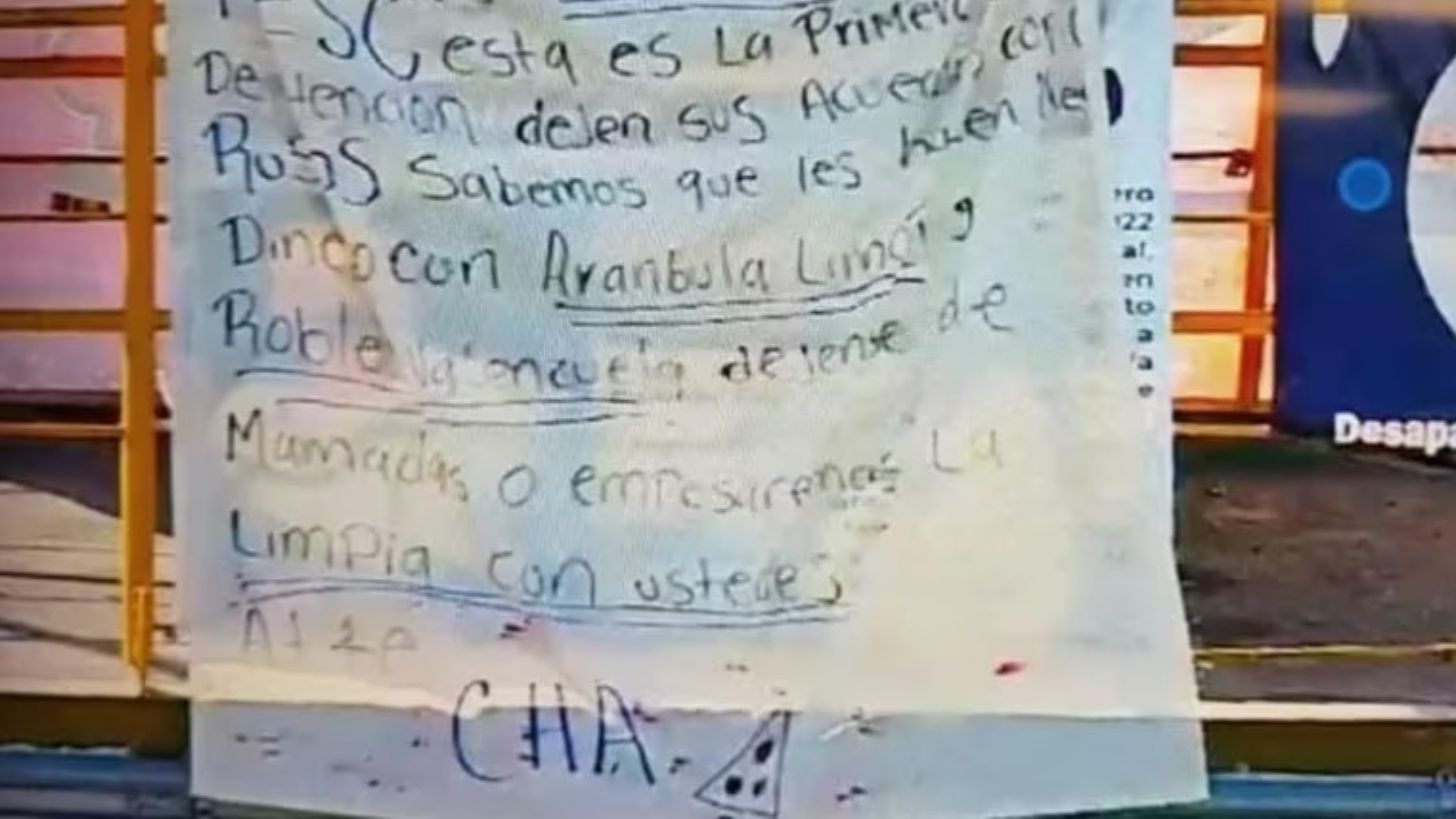 esta es La Primera
Detencion dejen sus Acuerdos con
Rusos Sabemos que les hacen
Dinero con Aranbula Limas,
Roble Valenzuela dejense de
Mamadas o empesaremos La
Limpia con ustedes
Atte
CHA.
ro
22
al.
en
to
a
a
e
Desapa